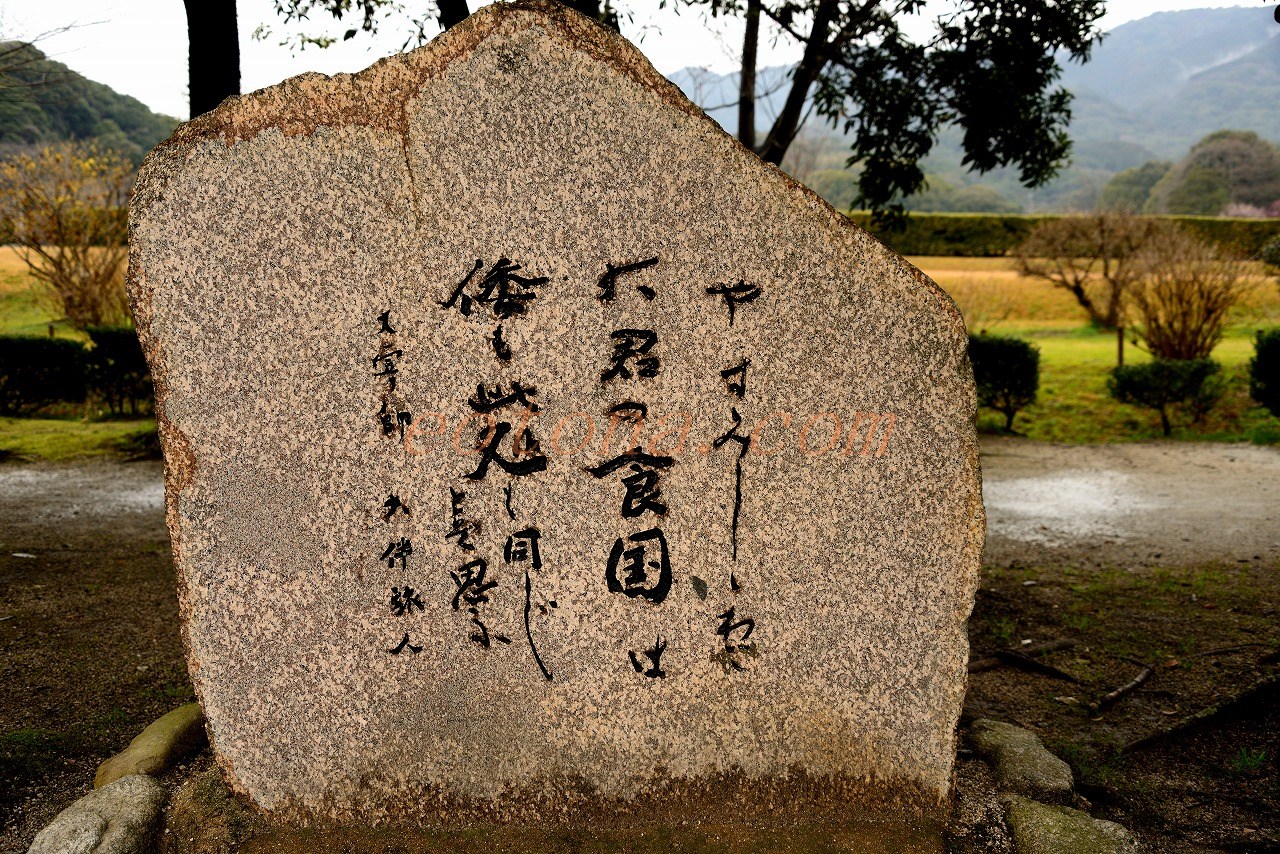 やすみしゝわが
大君乃食国は
倭も此処も同じ
と曽思ふ
大宰帥　大伴旅人
eotona.com